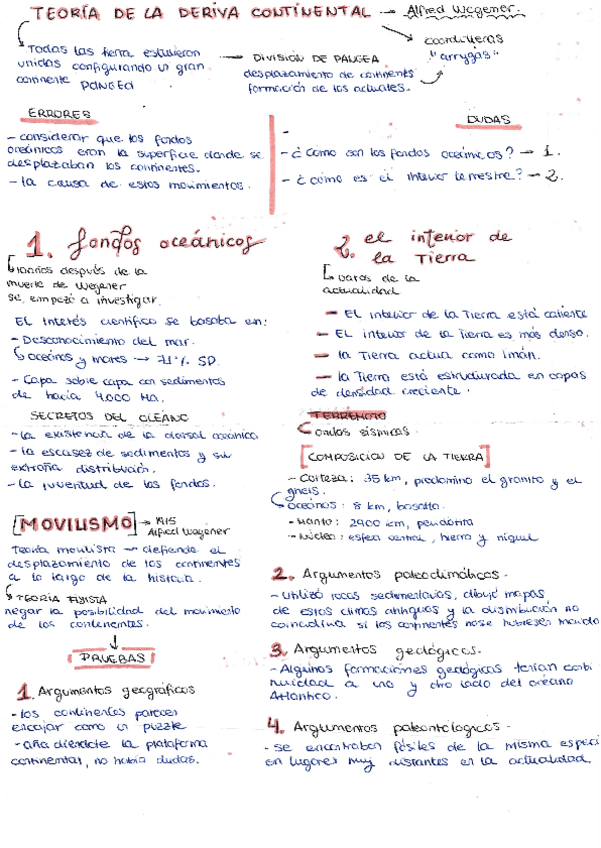 TEORÍA DE LA DERIVA CONTINENTAL → Alfred Wegener.
Todas las tierra estuvieron
unidas configurando un gran
continente PANGEA
DIVISIÓN DE PANGEA
desplazamiento de continentes
formación de los actuales.
cordilleras
"arrugas"
ERRORES
- considerar que los fondos
oceánicos eran la superficie donde se
desplazaban los continentes.
- la causa de estos movimientos.
DUDAS
-
- ¿Cómo son los fondos oceánicos? → 1.
- ¿cómo es el interior terrestre? → 2.
1. fondos oceánicos
después de la
muerte de Wegener
se empezó a investigar.
El interés científico se basaba en:
- Desconocimiento del mar.
océanos y mares → 71% SP.
- Capa sobre capa con sedimentos
de hacía 4000 Ma.
SECRETOS DEL OCÉANO
- la existencia de la dorsal oceánica
- la escasez de sedimentos y su
extraña distribución.
- la juventud de los fondos.
[MOVILISMO] → 1915
Alfred Wegener
Teoría movilista → defiende el
desplazamiento de los continentes
a lo largo de la historia.
TEORÍA FIJISTA
negar la posibilidad del movimiento
de los continentes.
[PRUEBAS]
1. Argumentos geográficos
- los continentes parecen
encajar como un puzzle
- añadiéndole la plataforma
continental, no había dudas.
2. el interior de
la Tierra
datos de la
actualidad
- El interior de la Tierra está caliente
- El interior de la Tierra es más denso.
- la Tierra actúa como imán.
- la Tierra está estructurada en capas
de densidad creciente.
TERREMOTO
ondas sísmicas.
[COMPOSICIÓN DE LA TIERRA]
- Corteza: 35 km, predomino el granito y el
gneis.
océanos: 8 km, basalto.
- Manto: 2900 km, peridotita
- Núcleo: esfera central, hierro y níquel
2. Argumentos paleoclimáticos.
- Utilizó rocas sedimentarias, dibujó mapas
de estos climas antiguos y la distribución no
coincidía si los continentes no se hubiesen movido
3. Argumentos geológicos.
- Algunas formaciones geológicas tenían conti
nuidad a uno y otro lado del océano
Atlántico.
4. Argumentos paleontológicos.
- se encontraban fósiles de la misma especi
en lugares muy distantes en la actualidad.